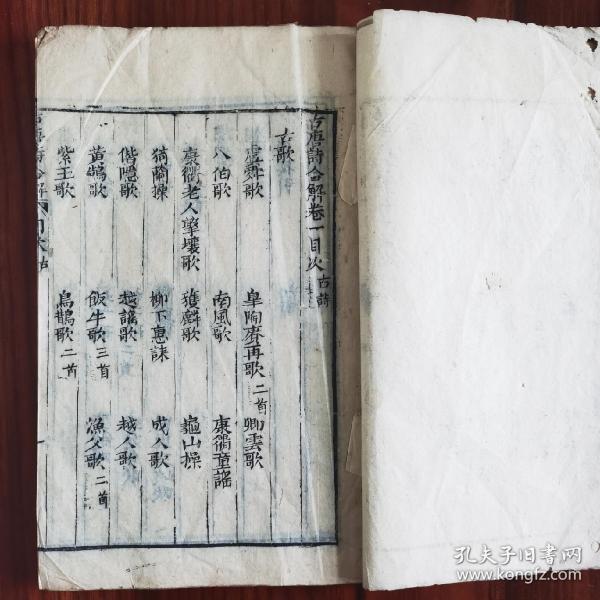 古唐詩合解卷一目次 古詩
古歌
虞舜歌 皐陶賡再歌二首 卿雲歌
八伯歌 南風歌 康衢童謡
康衢老人擊壤歌 獲麟歌 龜山操
猗蘭操 柳下惠誄 成人歌
偕隱歌 越謡歌 越人歌
黃鵠歌 飯牛歌三首 漁父歌二首
紫玉歌 烏鵲歌二首
古唐詩合解 目次 古
孔夫子旧书网
www.kongfz.com